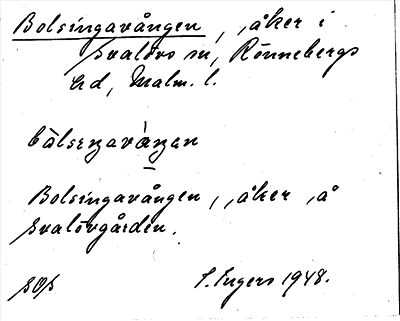 Bolsingavången, åker i
Svalövs sn, Rönnebergs
hd, Malm. l.
bålseŋavàŋen
Bolsingavången, åker å
Svalövgården.
SOS
S. Ingers 1948.